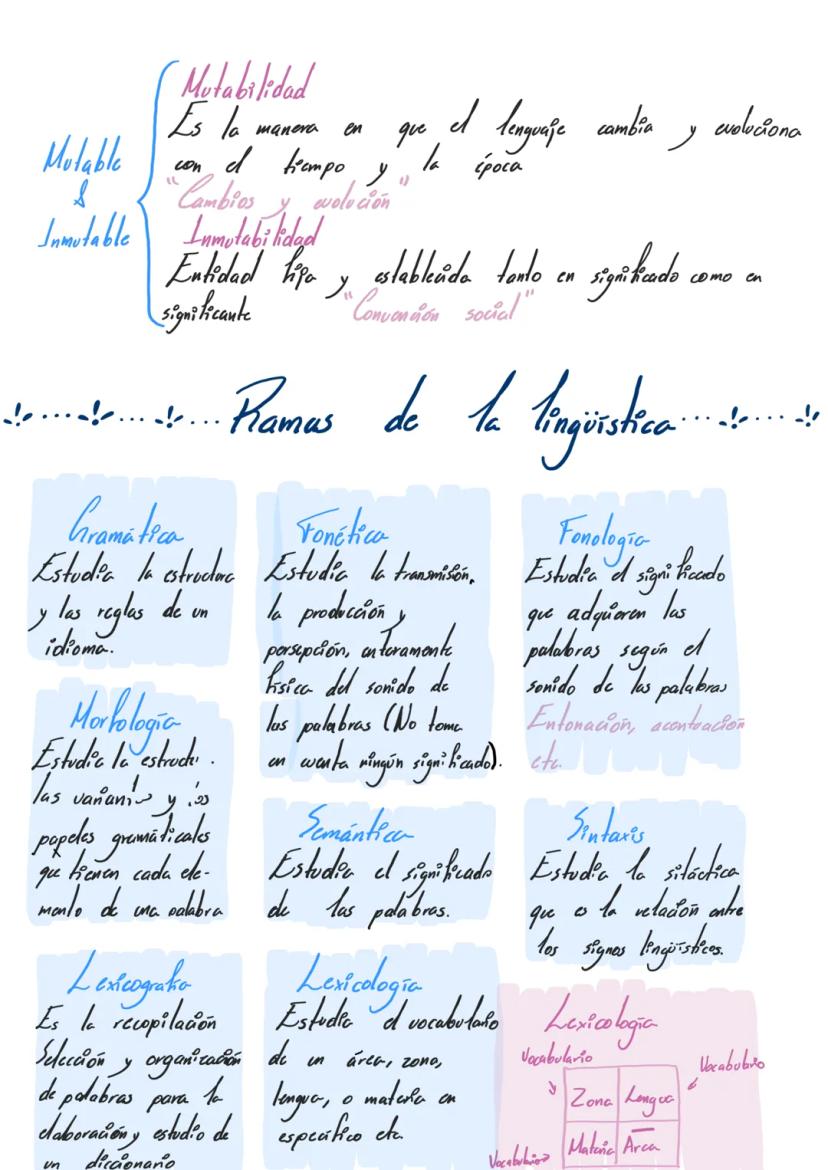 Mutable
&
Inmutable
Mutabilidad
Es la manera en que el lenguaje cambia y evoluciona
con el tiempo y la época
"Cambios y evolución"
Inmutabilidad
Entidad fija y establecida tanto en significado como en
significante "Convención social"
Ramas de la lingüística
Gramática
Estudia la estructura
y las reglas de un
idioma.
Fonética
Estudia la transmisión,
la producción y
persepción, enteramente
física del sonido de
las palabras (No toma
en cuenta ningún significado).
Fonología
Estudia el significado
que adquieren las
palabras según el
sonido de las palabras
Entonación, acentuación
etc.
Morfología
Estudia la
las y
papeles gramáticales
que tienen cada ele-
mento de una palabra
Semántica
Estudia el significado
de las palabras.
Sintaxis
Estudia la sitáctica
que es la relación entre
los signos lingüísticos.
Lexicografía
Es la recopilación
Selección y organización
de palabras para la
elaboración y estudio de
un diccionario
Lexicología
Estudia el vocabulario
de un área, zona,
lengua, o materia en
específico etc.
Lexicología
Vocabulario
Vocabulario
Zona Lengua
Materia Área
Vocabulario